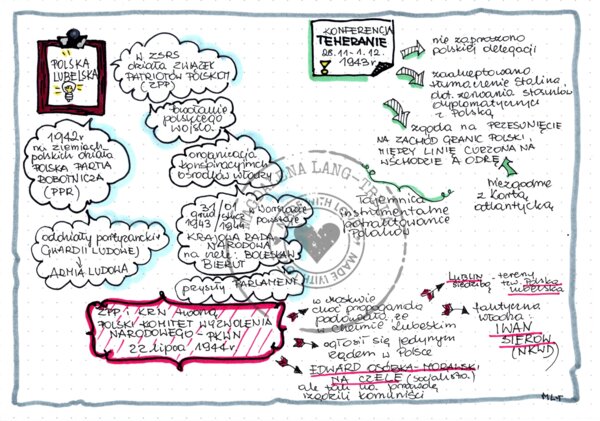 POLSKA
LUBELSKA
W ZSRS
działa ZWIĄZEK
PATRIOTÓW POLSKICH
(ZPP)
powstanie
polskiego
wojska
organizacja
konspiracyjnych
ośrodków władzy
1942 r.
na ziemiach
polskich działa
POLSKA PARTIA
ROBOTNICZA
(PPR)
oddziały partyzanckie
GWARDII LUDOWEJ
ARMIA LUDOWA
31/01
w Warszawie
powstaje
1943 1944
KRAJOWA RADA
NARODOWA
na czele: BOLESŁAW
BIERUT
przyszły PARLAMENT
ZPP i KRN tworzą
POLSKI KOMITET WYZWOLENIA
NARODOWEGO - PKWN
22 lipca 1944 r.
KONFERENCJA
TEHERANIE
28.11-1.12.
1943 r.
nie zaproszono
polskiej delegacji
zaakceptowano
tłumaczenie Stalina
dot. zerwania stosunków
dyplomatycznych
z Polską
zgoda na PRZESUNIĘCIE
NA ZACHÓD GRANIC POLSKI,
MIĘDZY LINIE CURZONA NA
WSCHODZIE A ODRĘ
Niezgodne
z Kartą
atlantycką
Tajemnica
instrumentalne
potraktowanie
Polaków
w Moskwie
choć propaganda
podawała, że
w Chełmie Lubelskim
ogłosił się jedynym
rządem w Polsce
EDWARD OSÓBKA-MORAWSKI
NA CZELE (socjalista)
ale tak na prawdę
rządzili komuniści
LUBLIN - tereny
siedzibą tzw. Polska
lubelska
faktyczna
władza:
IWAN
SIEROW
(NKWD)
MADE WITH LOVE
MLT